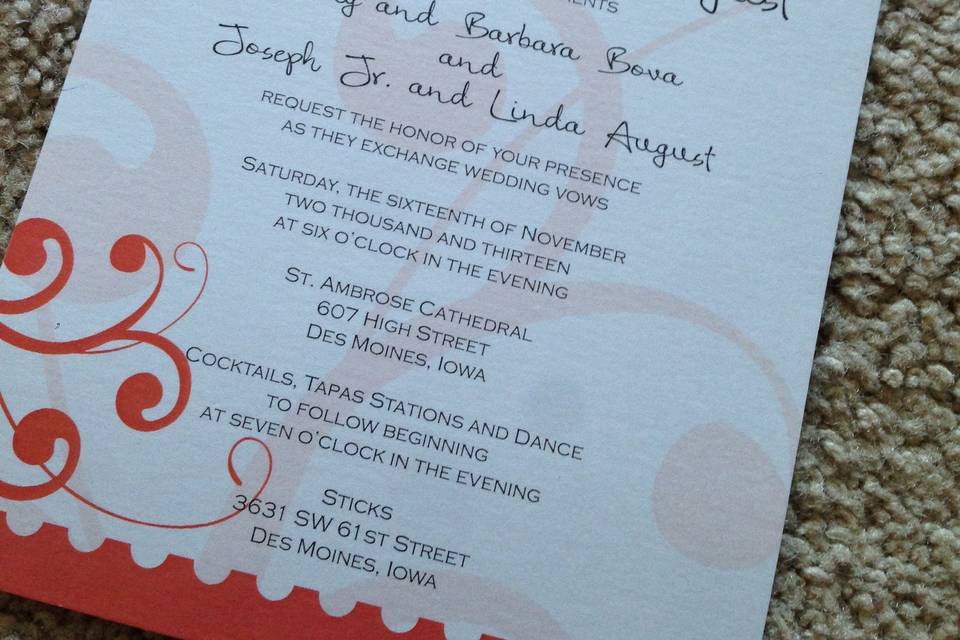 and Barbara Bova
and
Joseph Jr. and Linda August
REQUEST THE HONOR OF YOUR PRESENCE
AS THEY EXCHANGE WEDDING VOWS
SATURDAY, THE SIXTEENTH OF NOVEMBER
TWO THOUSAND AND THIRTEEN
AT SIX O'CLOCK IN THE EVENING
ST. AMBROSE CATHEDRAL
607 HIGH STREET
DES MOINES, IOWA
COCKTAILS, TAPAS STATIONS AND DANCE
TO FOLLOW BEGINNING
AT SEVEN O'CLOCK IN THE EVENING
STICKS
3631 SW 61ST STREET
DES MOINES, IOWA